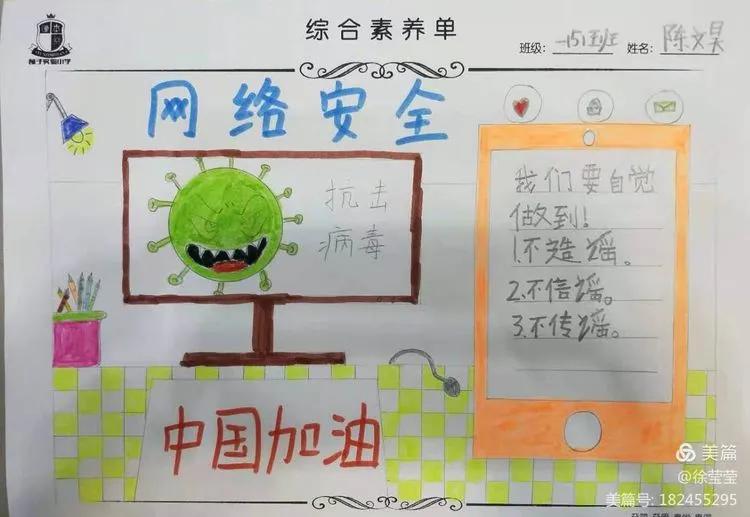 综合素养单
班级: 一151班 姓名: 陈文昊
网络安全
抗击
病毒
我们要自觉
做到!
1.不造谣。
2.不信谣。
3.不传谣。
中国加油
美篇
@徐莹莹
美篇号: 182455295